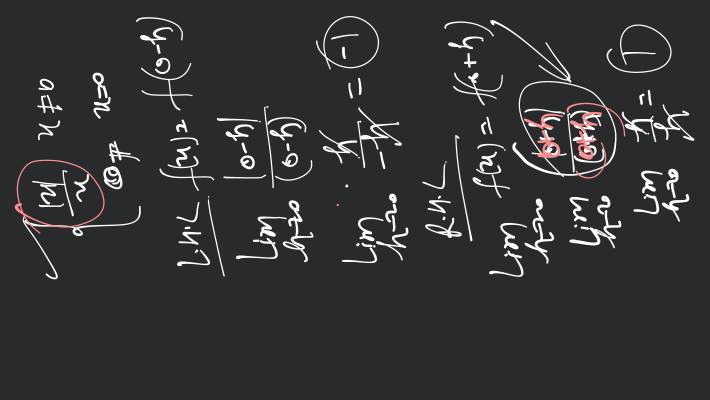 |x|/x x≠0
0 x=0
L.H.L
Lim h→0 f(x) = f(0-h)
Lim h→0 |0-h|/(0-h)
Lim h→0 h/-h = -1
R.H.L
Lim h→0 f(x) = f(0+h)
Lim h→0 |0+h|/(0+h)
Lim h→0 h/h = 1